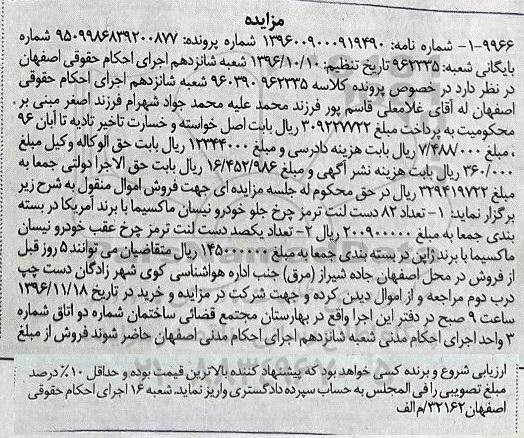 مزایده
۱-۹۹۶۶- شماره نامه: ۱۳۹۶۰۰۹۰۰۰۹۱۹۴۹۰ شماره پرونده: ۹۵۰۹۹۸۶۸۳۹۲۰۰۸۷۷ شماره
بایگانی شعبه: ۹۶۲۳۳۵ تاریخ تنظیم: ۱۳۹۶/۱۰/۱۰ شعبه شانزدهم اجرای احکام حقوقی اصفهان
در نظر دارد در خصوص پرونده کلاسه ۹۶۲۳۳۵ ۹۶۰۳۹۰ شعبه شانزدهم اجرای احکام حقوقی
اصفهان له آقای غلامعلی قاسم پور فرزند محمد علیه محمد جواد شهرام فرزند اصغر مبنی بر
محکومیت به پرداخت مبلغ ۳۰۹۲۲۷۷۲۲ ریال بابت اصل خواسته و خسارت تاخیر تادیه تا آبان ۹۶
، مبلغ ۷/۴۸۸/۰۰۰ ریال بابت هزینه دادرسی و مبلغ ۱۲۳۴۴۰۰۰ ریال بابت حق الوکاله وکیل مبلغ
۳۶۰/۰۰۰ ریال بابت هزینه نشر آگهی و مبلغ ۱۶/۴۵۲/۹۸۶ ریال بابت حق الاجرا دولتی جمعا به
مبلغ ۳۲۹۴۱۹۷۲۲ ریال در حق محکوم له جلسه مزایده ای جهت فروش اموال منقول به شرح زیر
برگزار نماید: ۱- تعداد ۸۲ دست لنت ترمز چرخ جلو خودرو نیسان ماکسیما با برند آمریکا در بسته
بندی جمعا به مبلغ ۲۰۰۹۰۰۰۰۰ ریال ۲- تعداد یکصد دست لنت ترمز چرخ عقب خودرو نیسان
ماکسیما با برند ژاپن در بسته بندی جمعا به مبلغ ۱۴۵۰۰۰۰۰۰ ریال متقاضیان می توانند ۵ روز قبل
از فروش در محل اصفهان جاده شیراز (مرق) جنب اداره هواشناسی کوی شهر زادگان دست چپ
درب دوم مراجعه و از اموال دیدن کرده و جهت شرکت در مزایده و خرید در تاریخ ۱۳۹۶/۱۱/۱۸
ساعت ۹ صبح در دفتر این اجرا واقع در بهارستان مجتمع قضائی ساختمان شماره دو اتاق شماره
۳ واحد اجرای احکام مدنی شعبه شانزدهم اجرای احکام مدنی اصفهان حاضر شوند فروش از مبلغ
ارزیابی شروع و برنده کسی خواهد بود که پیشنهاد کننده بالاترین قیمت بوده و حداقل ۱۰٪ درصد
مبلغ تصویبی را فی المجلس به حساب سپرده دادگستری واریز نماید. شعبه ۱۶ اجرای احکام حقوقی
اصفهان ۳۲۱۶۲/م الف